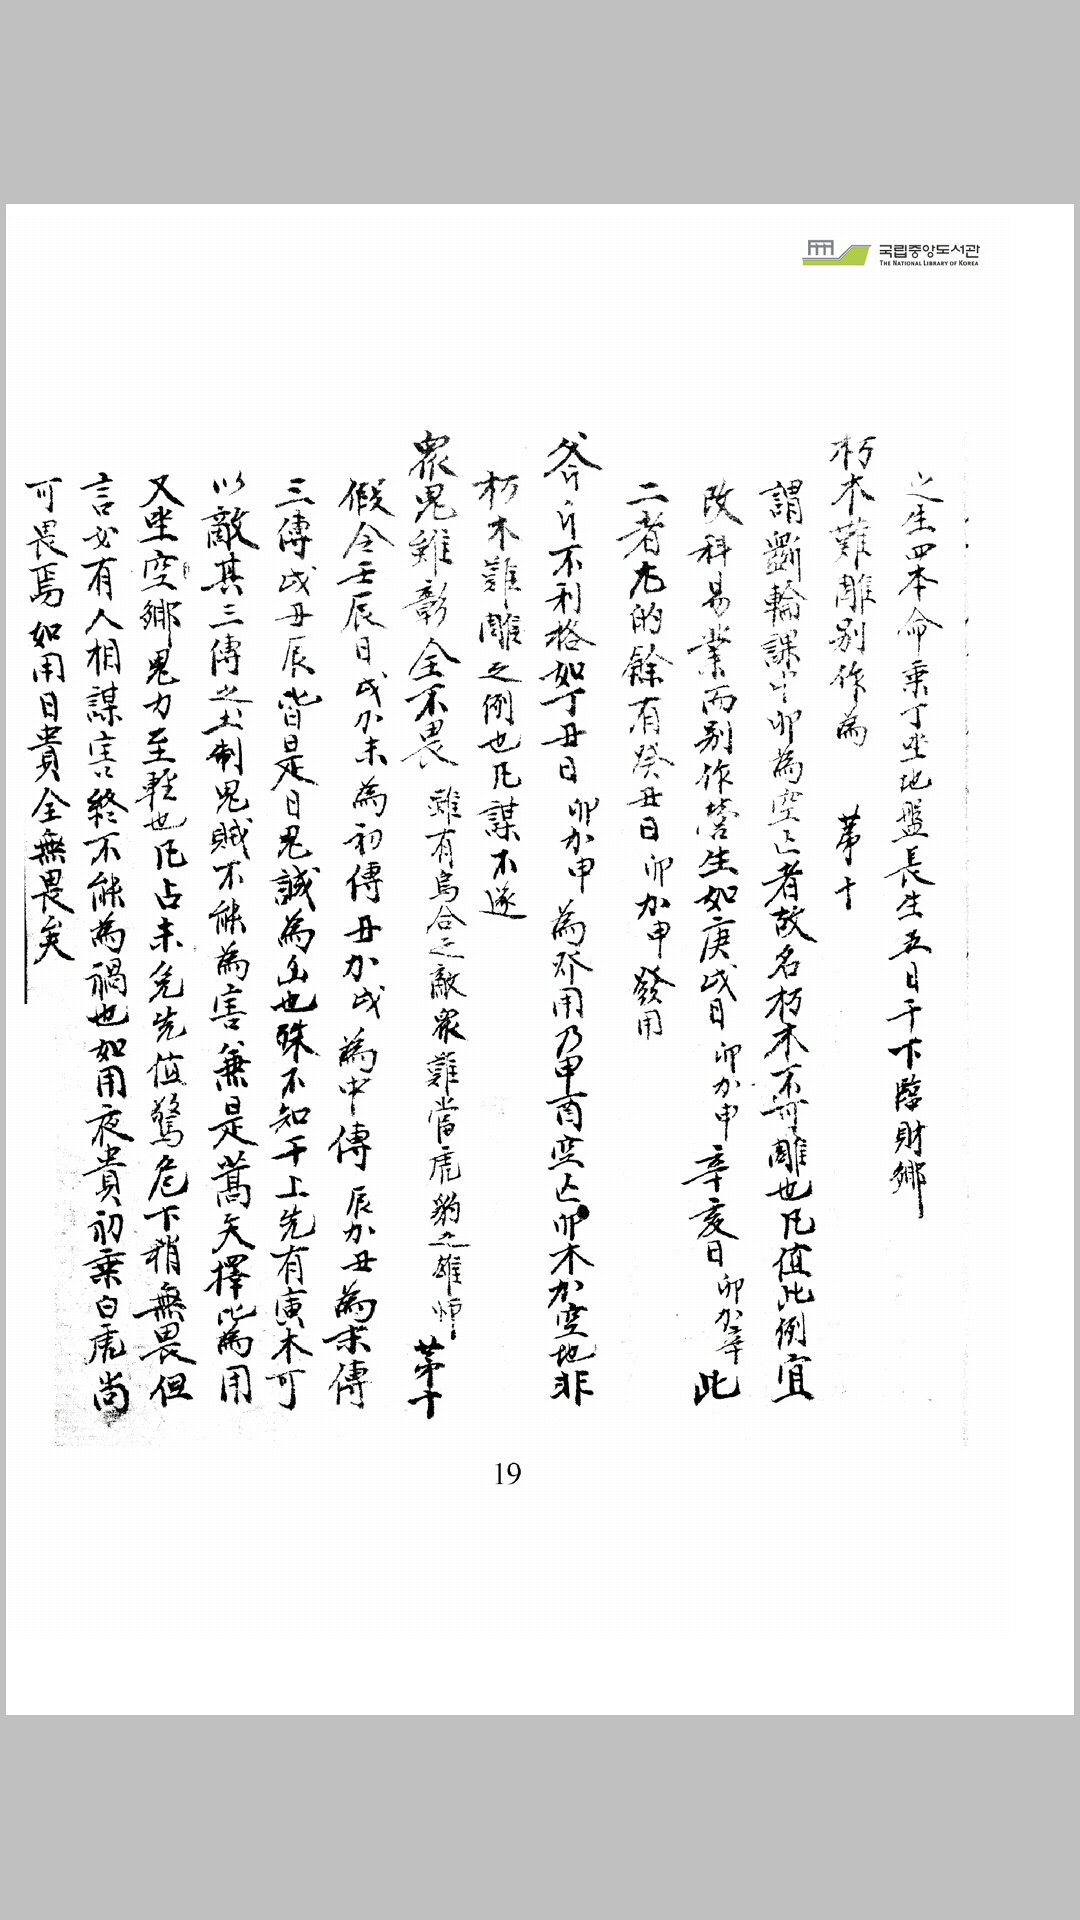 국립중앙도서관
THE NATIONAL LIBRARY OF KOREA
之生四本命乗丁坐地盤長生五日干下臨財鄉
朽木難雕别作為 苐十
謂斵輪課中卯為空亡者故名朽木不可雕也凡值此例宜
改科易業而别作營生如庚戌日卯加申辛亥日卯加辛此
二者尤的餘有癸丑日卯加申發用
斧斤不利格如丁丑日卯加申為發用乃申酉空亡卯木加空地非
朽木難雕之例也凡謀不遂
衆鬼雖彰全不畏 雖有烏合之敵衆難當虎豹之雄師 苐十
假令壬辰日戌加未為初傳丑加戌為中傳辰加丑為末傳
三傳戌丑辰皆是日鬼誠為凶也殊不知干上先有寅木可
以敵其三傳之土制鬼賊不能為害兼是蒿矢擇此為用
又坐空鄉鬼力至輕也凡占未免先值驚危下稍無畏但
言必有人相謀害終不能為禍也如用夜貴初乗白虎尚
可畏焉如用日貴全無畏矣
19